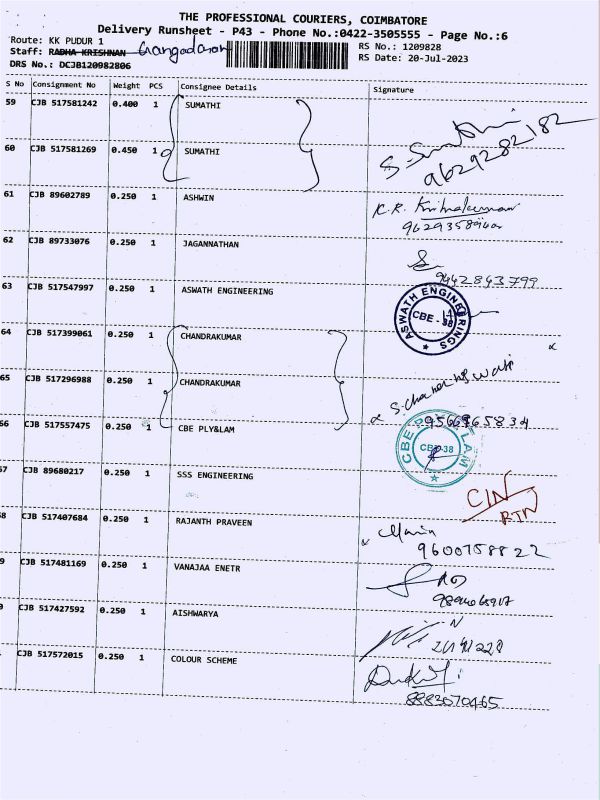 THE PROFESSIONAL COURIERS, COIMBATORE
Delivery Runsheet - P43 - Phone No.:0422-3505555 - Page No.:6
Route: KK PUDUR 1
RS No.: 1209828
Staff: RADHA KRISHNAN Gangadaran
RS Date: 20-Jul-2023
DRS No.: DCJB120982806
S No Consignment No Weight PCS Consignee Details Signature
59 CJB 517581242 0.400 1 SUMATHI
60 CJB 517581269 0.450 1 SUMATHI S-Sumathi
9629282182
61 CJB 89602789 0.250 1 ASHWIN K.R. Krishnakumar
62 CJB 89733076 0.250 1 JAGANNATHAN
9442843799
63 CJB 517547997 0.250 1 ASWATH ENGINEERING ASWATH ENGINEERINGS CBE - 38
64 CJB 517399061 0.250 1 CHANDRAKUMAR
65 CJB 517296988 0.250 1 CHANDRAKUMAR
66 CJB 517557475 0.250 1 CBE PLY&LAM CBE PLY LAM CBE-38
67 CJB 89680217 0.250 1 SSS ENGINEERING
CIN
RTN
8 CJB 517407684 0.250 1 RAJANTH PRAVEEN
9600758822
9 CJB 517481169 0.250 1 VANAJAA ENETR
0 CJB 517427592 0.250 1 AISHWARYA
CJB 517572015 0.250 1 COLOUR SCHEME
8883070465